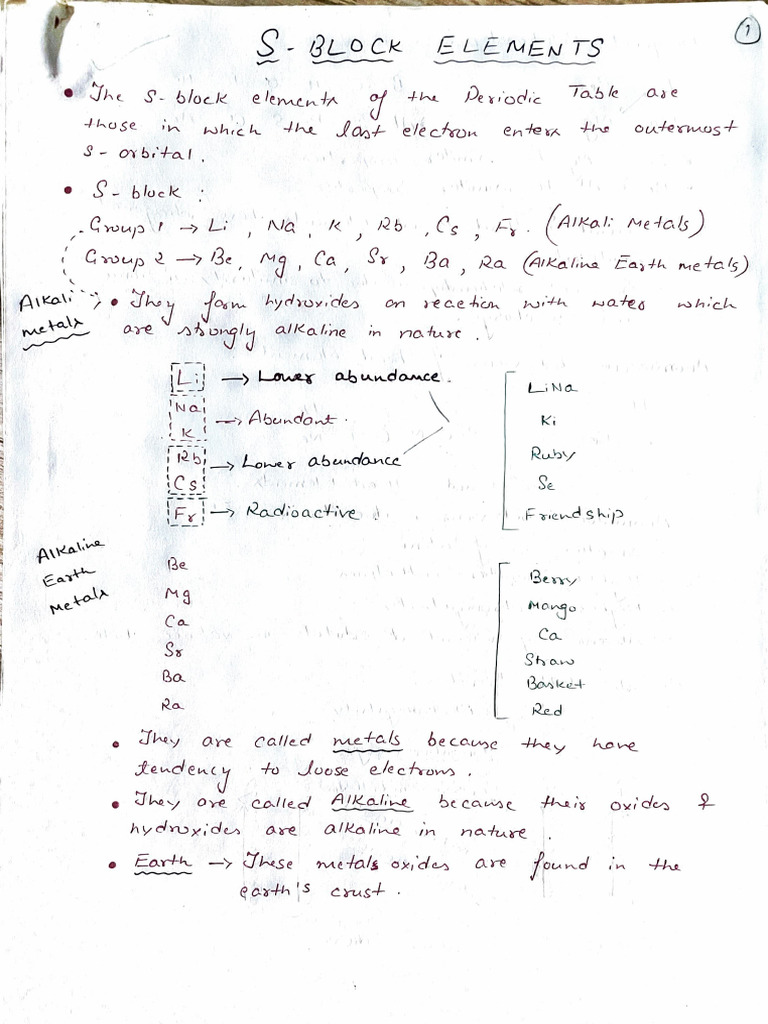 1
S-BLOCK ELEMENTS
• The S-block elements of the Periodic Table are
those in which the last electron enters the outermost
s-orbital.
• S-block :
Group 1 → Li, Na, K, Rb, Cs, Fr. (Alkali Metals)
Group 2 → Be, Mg, Ca, Sr, Ba, Ra (Alkaline Earth metals)
Alkali
metals
• They form hydroxides on reaction with water which
are strongly alkaline in nature.
Li → Lower abundance.
Na
K → Abundant.
Rb
Cs → Lower abundance
Fr → Radioactive.
LiNa
Ki
Ruby
Se
Friendship
Alkaline
Earth
Metals
Be
Mg
Ca
Sr
Ba
Ra
Berry
Mango
Ca
Straw
Basket
Red
• They are called metals because they have
tendency to loose electrons.
• They are called Alkaline because their oxides &
hydroxides are alkaline in nature.
• Earth → These metals oxides are found in the
earth's crust.